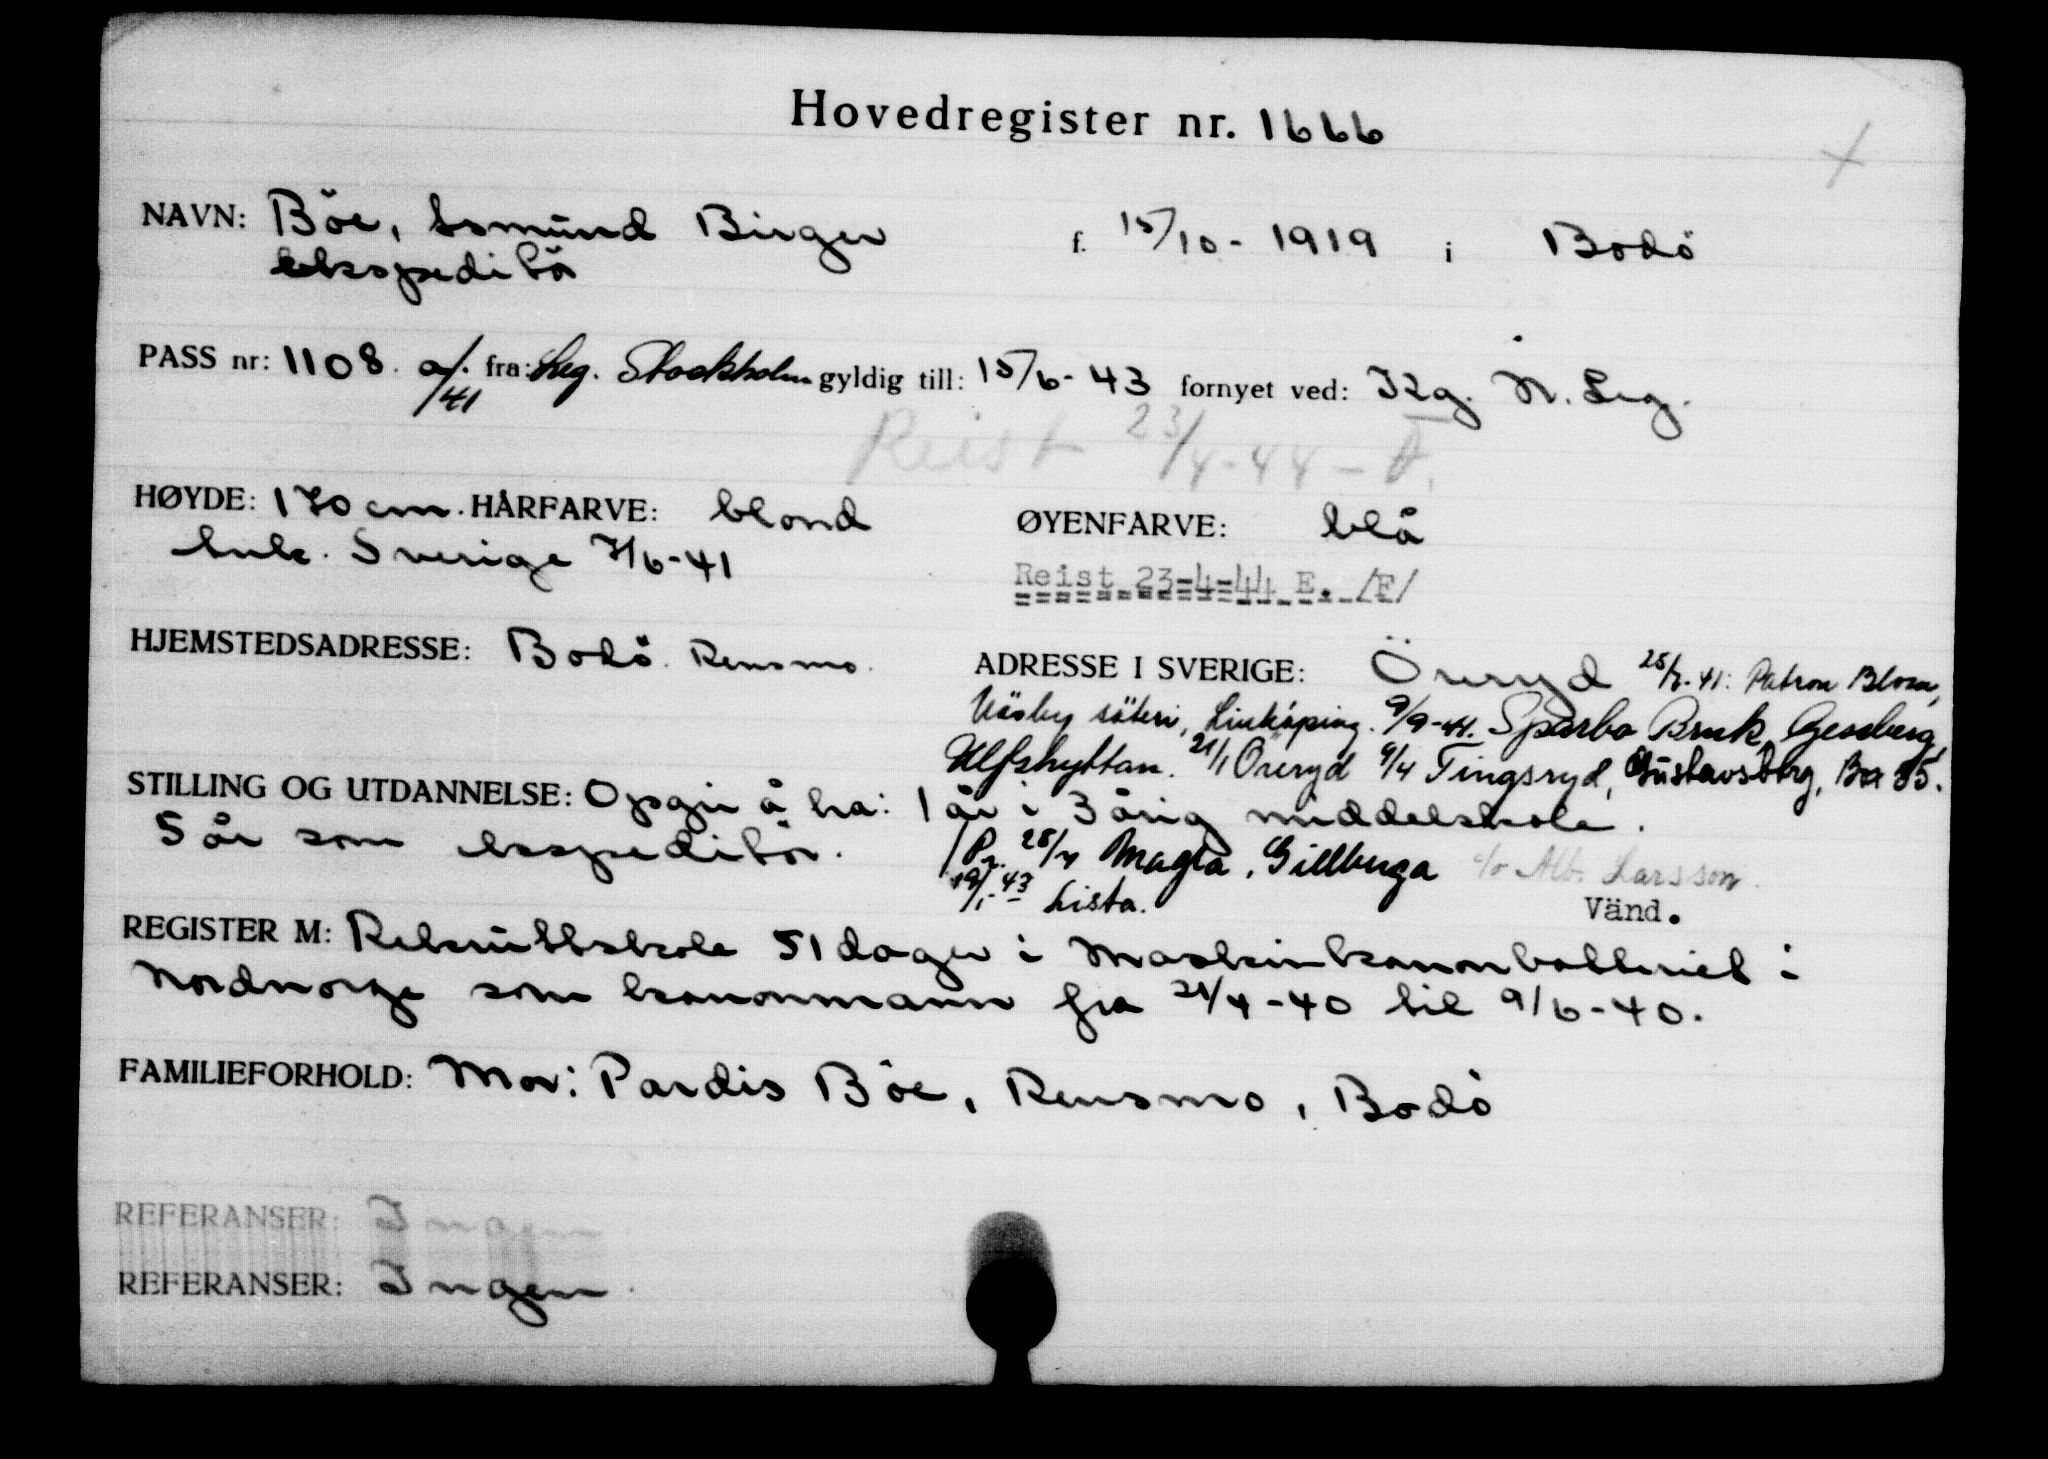 Hovedregister nr. 1666
NAVN: Böe, Asmund Birger f. 15/10 - 1919 i Bodö
ekspeditör
PASS nr: 1108 a/41 fra: Leg. Stockholm gyldig till: 15/6 - 43 fornyet ved: Kg. N. Leg.
Reist 23/4-44 -
HØYDE: 170 cm. HÅRFARVE: blond ØYENFARVE: blå
Ink. Sverige 7/6-41
Reist 23-4-44 E. /F/
HJEMSTEDSADRESSE: Bodö. Rensmo.
ADRESSE I SVERIGE: Öreryd 25/7-41: Patron Blom,
Näsby säteri, Linköping. 9/9-41. Sparbo Bruk, Gesberg,
Ulfshyttan. 21/1 Öreryd 9/4 Tingsryd, Gustavsborg, Ba 35.
STILLING OG UTDANNELSE: Opgir å ha: 1 år i 3 årig middelskole.
5 år som ekspeditör.
28/4 Magla, Gillberga c/o Alb. Larsson.
19/1-43 Lista.
Vänd.
REGISTER M: Rekruttskole 51 dager i Maskinkanonbatteriet i
Nordnorge som kanonmann fra 21/4-40 til 9/6-40.
FAMILIEFORHOLD: Mor: Pardis Böe, Rensmo, Bodö
REFERANSER: Ingen
REFERANSER: Ingen.